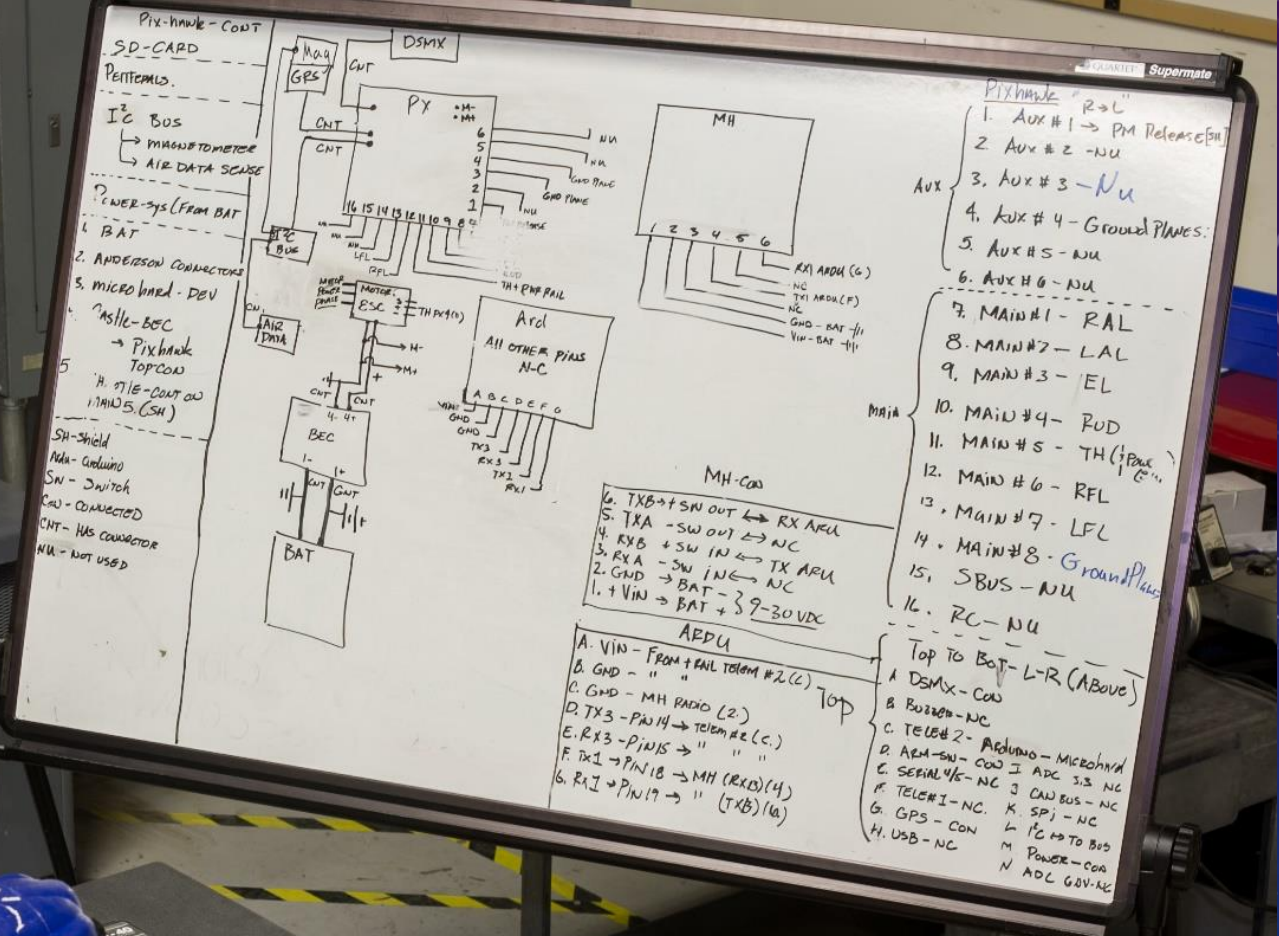 Pix-hawk-CONT
SD-CARD
I²C BUS
→ MAGNETOMETER
→ AIR DATA SENSE
POWER-SYS (FROM BAT
1. BAT
2. ANDERSON CONNECTORS
3. MICROHARD-DEV
-BEC
→ Pixhawk
TOPCON
5
MAIN 5. (SH)
SH-Shield
Ardu-arduino
SW-Switch
CON-CONNECTED
CNT-HAS CONNECTOR
NU-NOT USED
Mag
GPS
DSMX
CNT
CNT
CNT
PX
•M-
•M+
6
5
4
3
2
1
NU
NU
GND PLANE
GND PLANE
NU
16 15 14 13 12 11 10 9 8
NU
NU
LFL
RFL
RUD
TH+PWR RAIL
I²C
BUS
AIR
DATA
MOTOR
POWER
PHASE
MOTOR
ESC
M-
M+
+
CNT
CNT
4- 4+
BEC
1- 1+
CNT CNT
BAT
Ard
All OTHER PINS
N-C
A B C D E F G
VIN
GND
GND
TX3
RX3
TX1
RX1
MH
1 2 3 4 5 6
RX1 ARDU (G)
NC
TX1 ARDU (F)
NC
GND-BAT
VIN-BAT
MH-CON
6. TXB→+SW OUT ↔ RX ARU
5. TXA -SW OUT ↔ NC
4. RXB +SW IN ↔ TX ARU
3. RXA -SW IN ↔ NC
2. GND → BAT -
1. +VIN → BAT + } 9-30 VDC
ARDU
A. VIN-FROM+RAIL TELEM #2 (C)
B. GND - " "
C. GND - MH RADIO (2.)
D. TX3-PIN14 → TELEM #2 (C.)
E. RX3-PIN15 → " "
F. TX1 → PIN18 → MH (RXB)(4)
G. RX1 → PIN19 → " (TXB)(6)
QUARTET Supermate
Pixhawk "R→L"
AUX
1. AUX #1 → PM Release [SH]
2. AUX #2 -NU
3. AUX #3 -NU
4. AUX #4 -Ground PLANES.
5. AUX #5 -NU
6. AUX #6 -NU
MAIN
7. MAIN #1 - RAL
8. MAIN #2 - LAL
9. MAIN #3 - EL
10. MAIN #4 - RUD
11. MAIN #5 - TH
12. MAIN #6 - RFL
13. MAIN #7 - LFL
14. MAIN #8 - Ground Planes
15. SBUS-NU
16. RC-NU
TOP
Top To BOT-L-R (ABOVE)
A DSMX-CON
B BUZZER-NC
C. TELE#2-Arduino-Microhard
D. ARM-SW-CON
E. SERIAL 4/5-NC
F. TELE#1-NC.
G. GPS-CON
H. USB-NC
I ADC 3.3 NC
J CAN BUS-NC
K. SPI-NC
L I²C ↔ TO BUS
M POWER-CON
N ADC 6.6V-NC